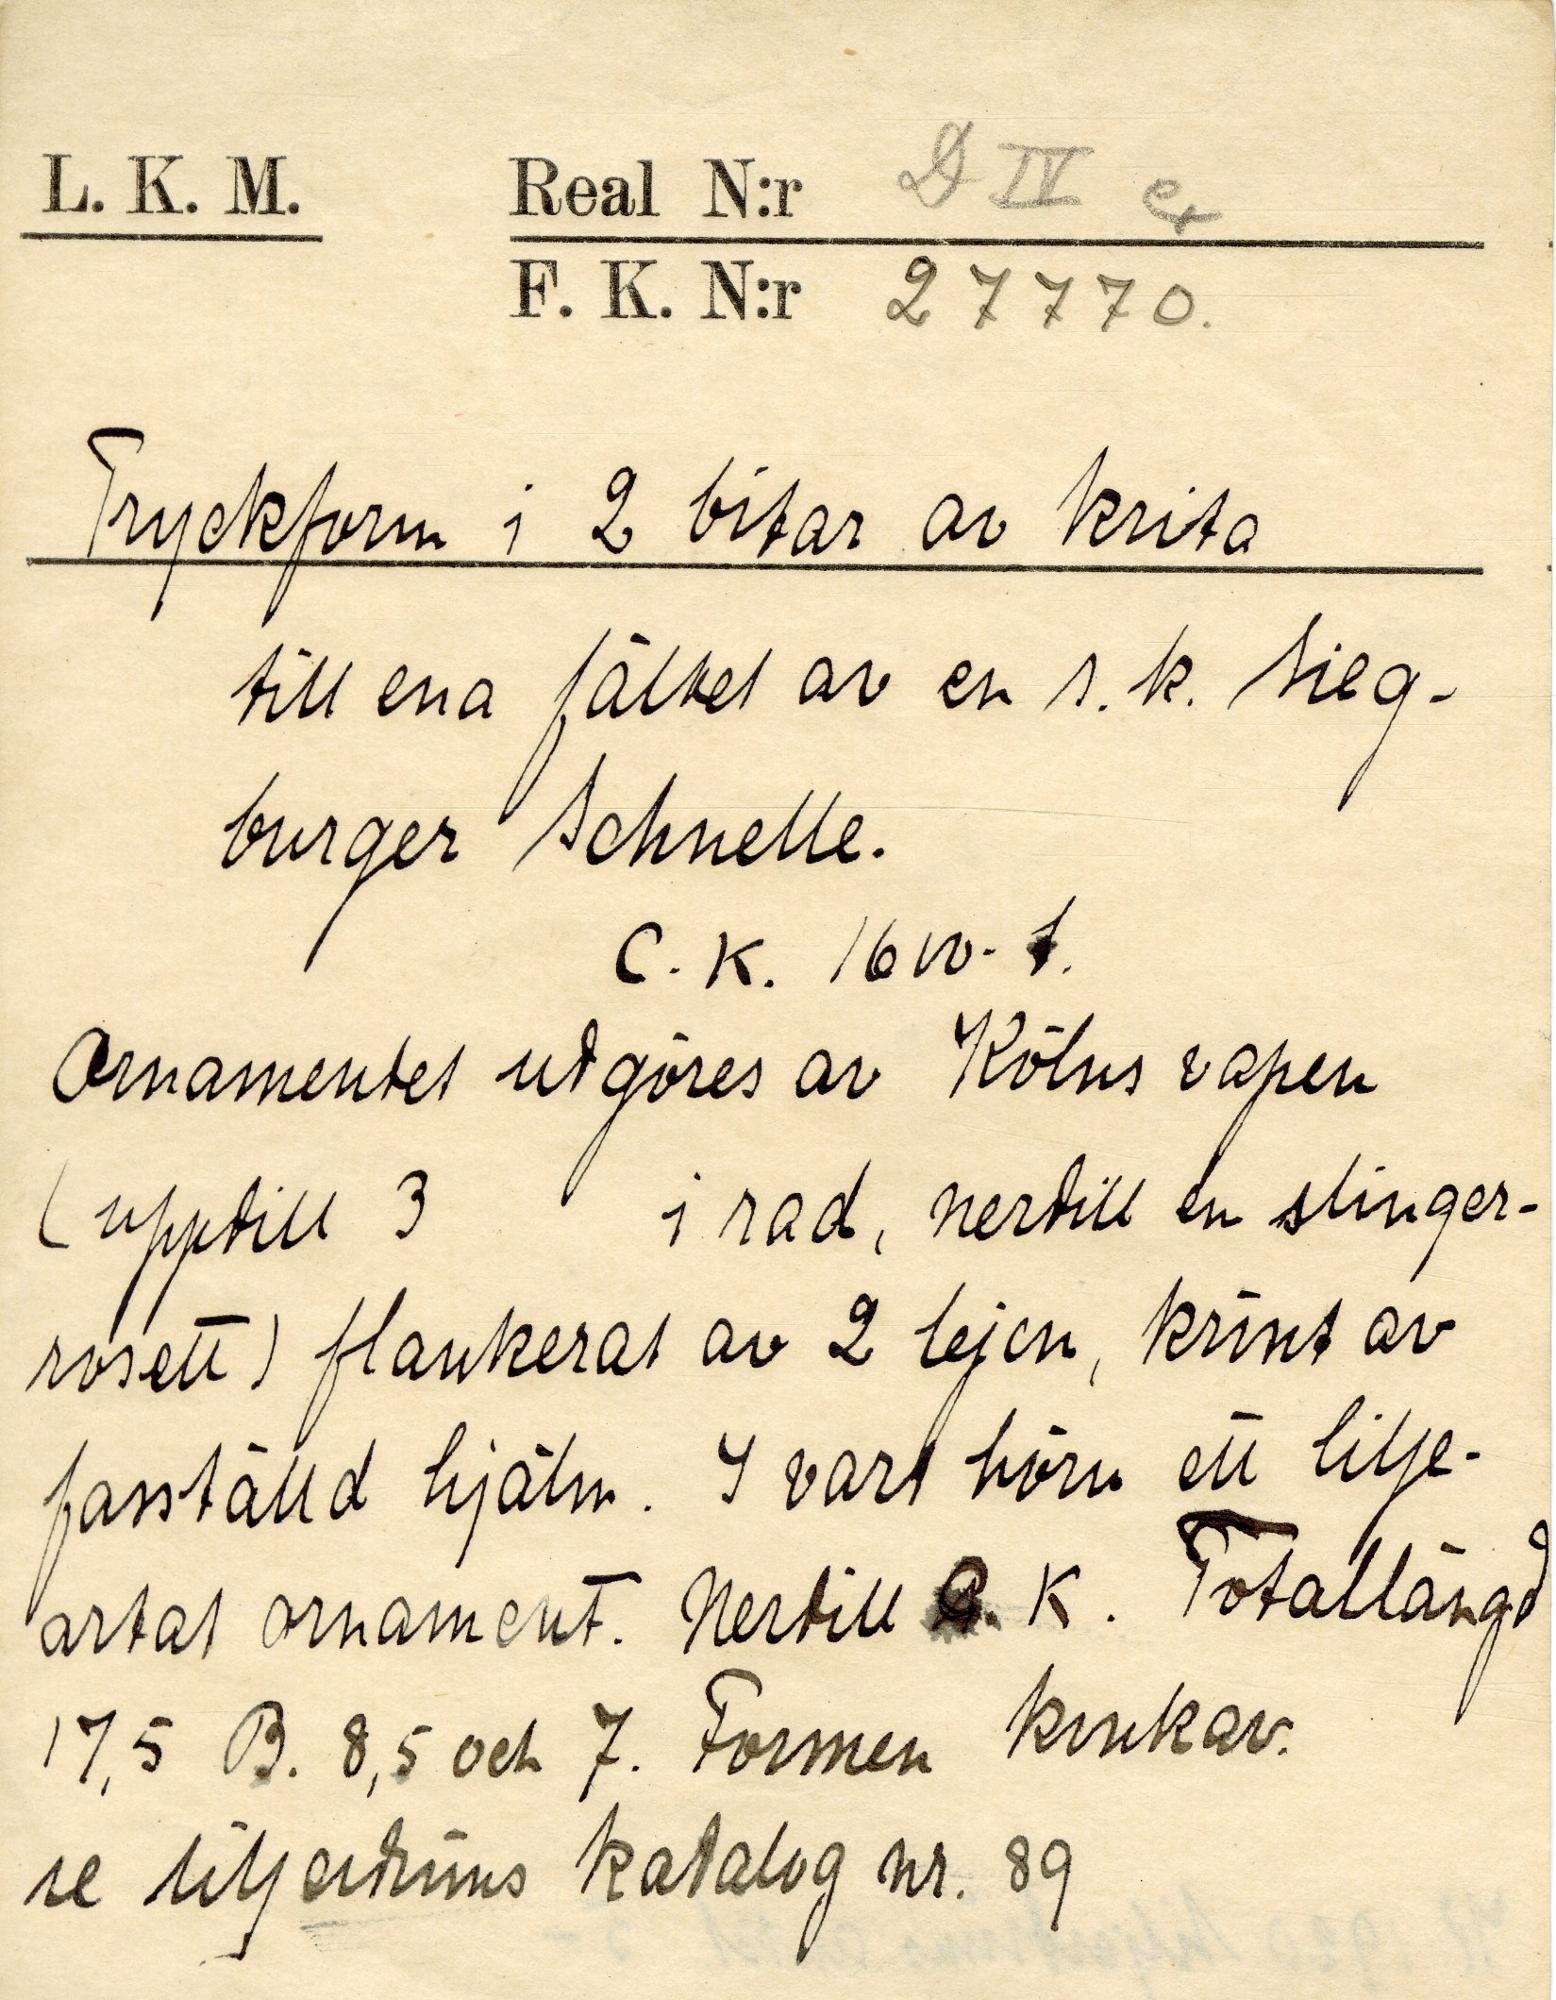 L. K. M. Real N:r D IV e
F. K. N:r 27770.
Tryckform i 2 bitar av krita
till ena fältet av en s.k. Sieg-
burger Schnelle.
C. K. 1600-t.
Ornamentet utgöres av Kölns vapen
(upptill 3 i rad, nertill en slinger-
rosett) flankerat av 2 lejon, krönt av
fasställd hjälm. I vart hörn ett lilje-
artat ornament. Nertill C. K. Totallängd
17,5 B. 8,5 och 7. Formen konkav.
se Siljeströms katalog nr. 89